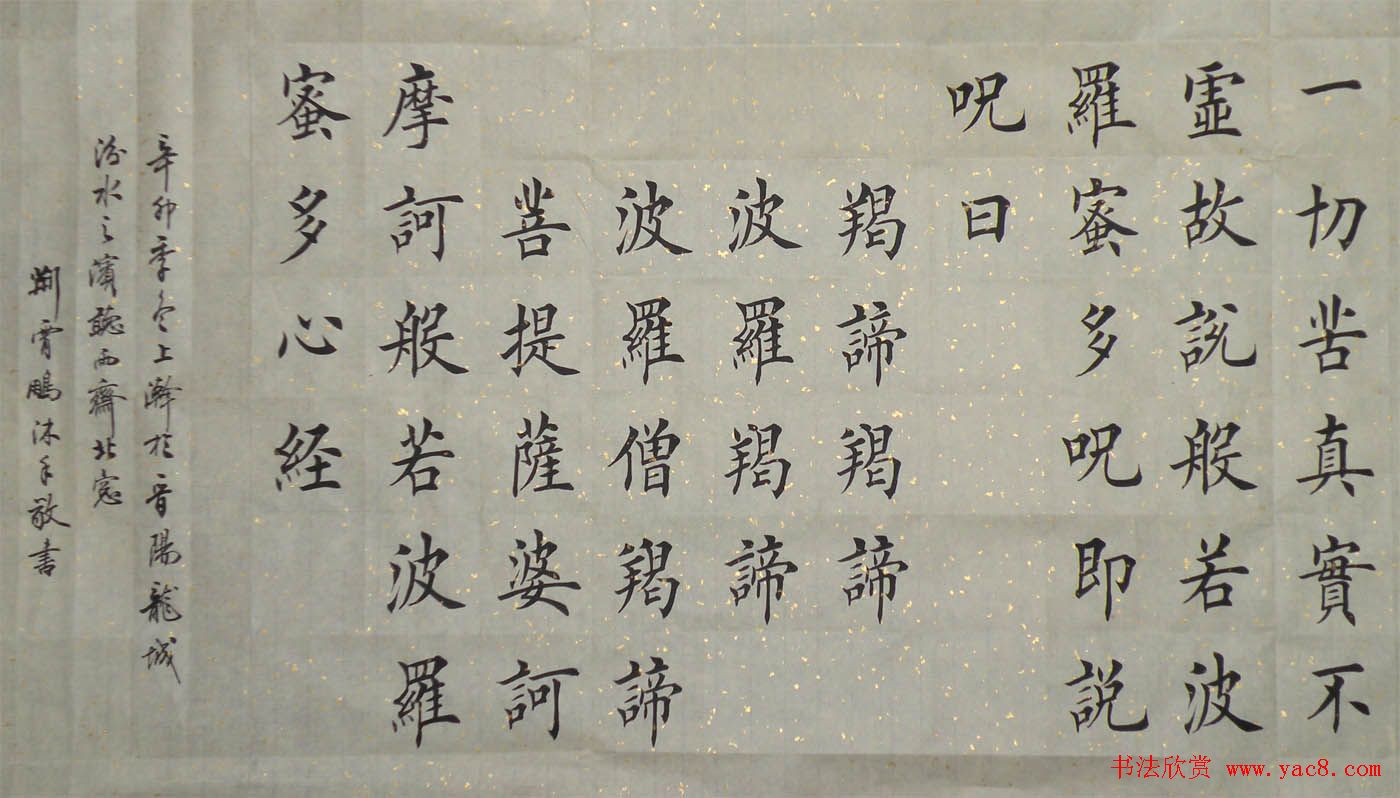 一切苦真實不
虛故説般若波
羅蜜多呪即説
呪曰
羯諦羯諦
波羅羯諦
波羅僧羯諦
菩提薩婆訶
摩訶般若波羅
蜜多心経
辛卯季冬上澣於晉陽龍城
汾水之濱聽雨齋北窓
荊霄鵬沐手敬書
书法欣赏 www.yac8.com